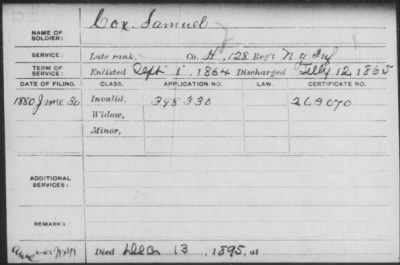 NAME OF SOLDIER: Cox, Samuel
SERVICE: Late rank, Co. H, 128 Reg't N Y Inf
TERM OF SERVICE: Enlisted Sept 1, 1864 Discharged July 12, 1865
DATE OF FILING. CLASS. APPLICATION NO. LAW. CERTIFICATE NO.
1880 June 30 Invalid, 398330 263070
Widow,
Minor,
ADDITIONAL SERVICES:
REMARKS:
Died Dec 13, 1895, at